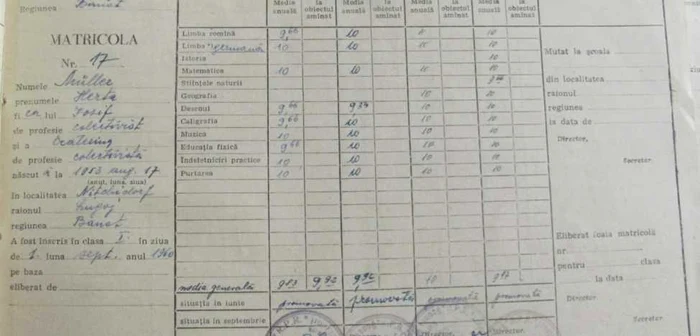 Regiunea Banat
MATRICOLA
Nr. 17
Numele Müller
prenumele Herta
fi ca lui Iosif
de profesie colectivist
și a
de profesie colectivistă
născut ă la 1953 aug. 17
(anul, luna, ziua)
în localitatea Nițchidorf
raionul Lugoj
regiunea Banat
A fost înscris în clasa I. în ziua
de 1. luna sept. anul 1960
pe baza
eliberat de
Media anuală la obiectul aminat Media anuală la obiectul aminat Media anuală la obiectul aminat Media anuală la obiectul aminat
Limba romînă 9,66 10 10 10
Limba germană 10 10 10 10
Istorie 10
Matematica 10 10 10 10
Științele naturii
Geografia 10 10
Desenul 9,66 10 10
Caligrafia 9,66 10 10 10
Muzica 10 10 10 10
Educația fizică 9,66 10 10 10
Îndeletniciri practice 10 10 10 10
Purtarea 10 10 10 10
media generală 10
situația în iunie promovată promovată promovată promovată
situația în septembrie
Mutat la școala
din localitatea
raionul
regiunea
la data de
Director,
Secretar,
Eliberat foaia matricolă
nr.
pentru clasa
la data
Director
Secretar